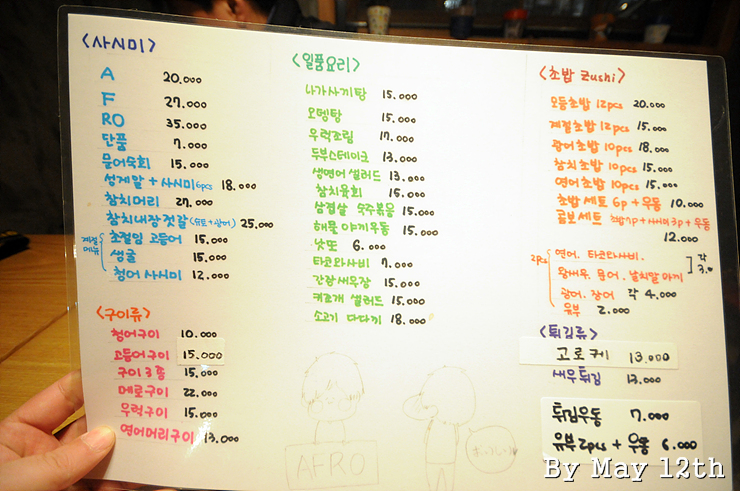 <사시미>
A 20.000
F 27.000
RO 35.000
단품 7.000
문어숙회 15.000
성게알 + 사시미 6pcs 18.000
참치머리 27.000
참치내장젓갈 (슈토+광어) 25.000
계절메뉴
초절임 고등어 15.000
생굴 15.000
청어 사시미 12.000
<구이류>
청어구이 10.000
고등어구이 15.000
구이3종 15.000
메로구이 22.000
우럭구이 15.000
연어머리구이 13.000
<일품요리>
나가사끼탕 15.000
오뎅탕 15.000
우럭조림 17.000
두부스테이크 13.000
생연어 샐러드 13.000
참치육회 15.000
삼겹살 숙주볶음 15.000
해물 야끼우동 15.000
낫또 6.000
타코와사비 7.000
간장새우장 15.000
키조개 샐러드 15.000
소고기 다다끼 18.000
AFRO
<초밥 Zushi>
모듬초밥 12pcs 20.000
계절초밥 12pcs 15.000
광어초밥 10pcs 18.000
참치초밥 10pcs 15.000
연어초밥 10pcs 15.000
초밥 세트 6p + 우동 10.000
콤보세트 초밥7p + 사시미3p + 우동
12.000
2Pcs
연어. 타코와사비.
왕새우. 문어. 날치알 마끼
각 3.000
광어. 장어 각 4.000
유부 2.000
<튀김류>
고로케 13.000
새우튀김 13.000
튀김우동 7.000
유부2pcs + 우동 6.000
By May 12th